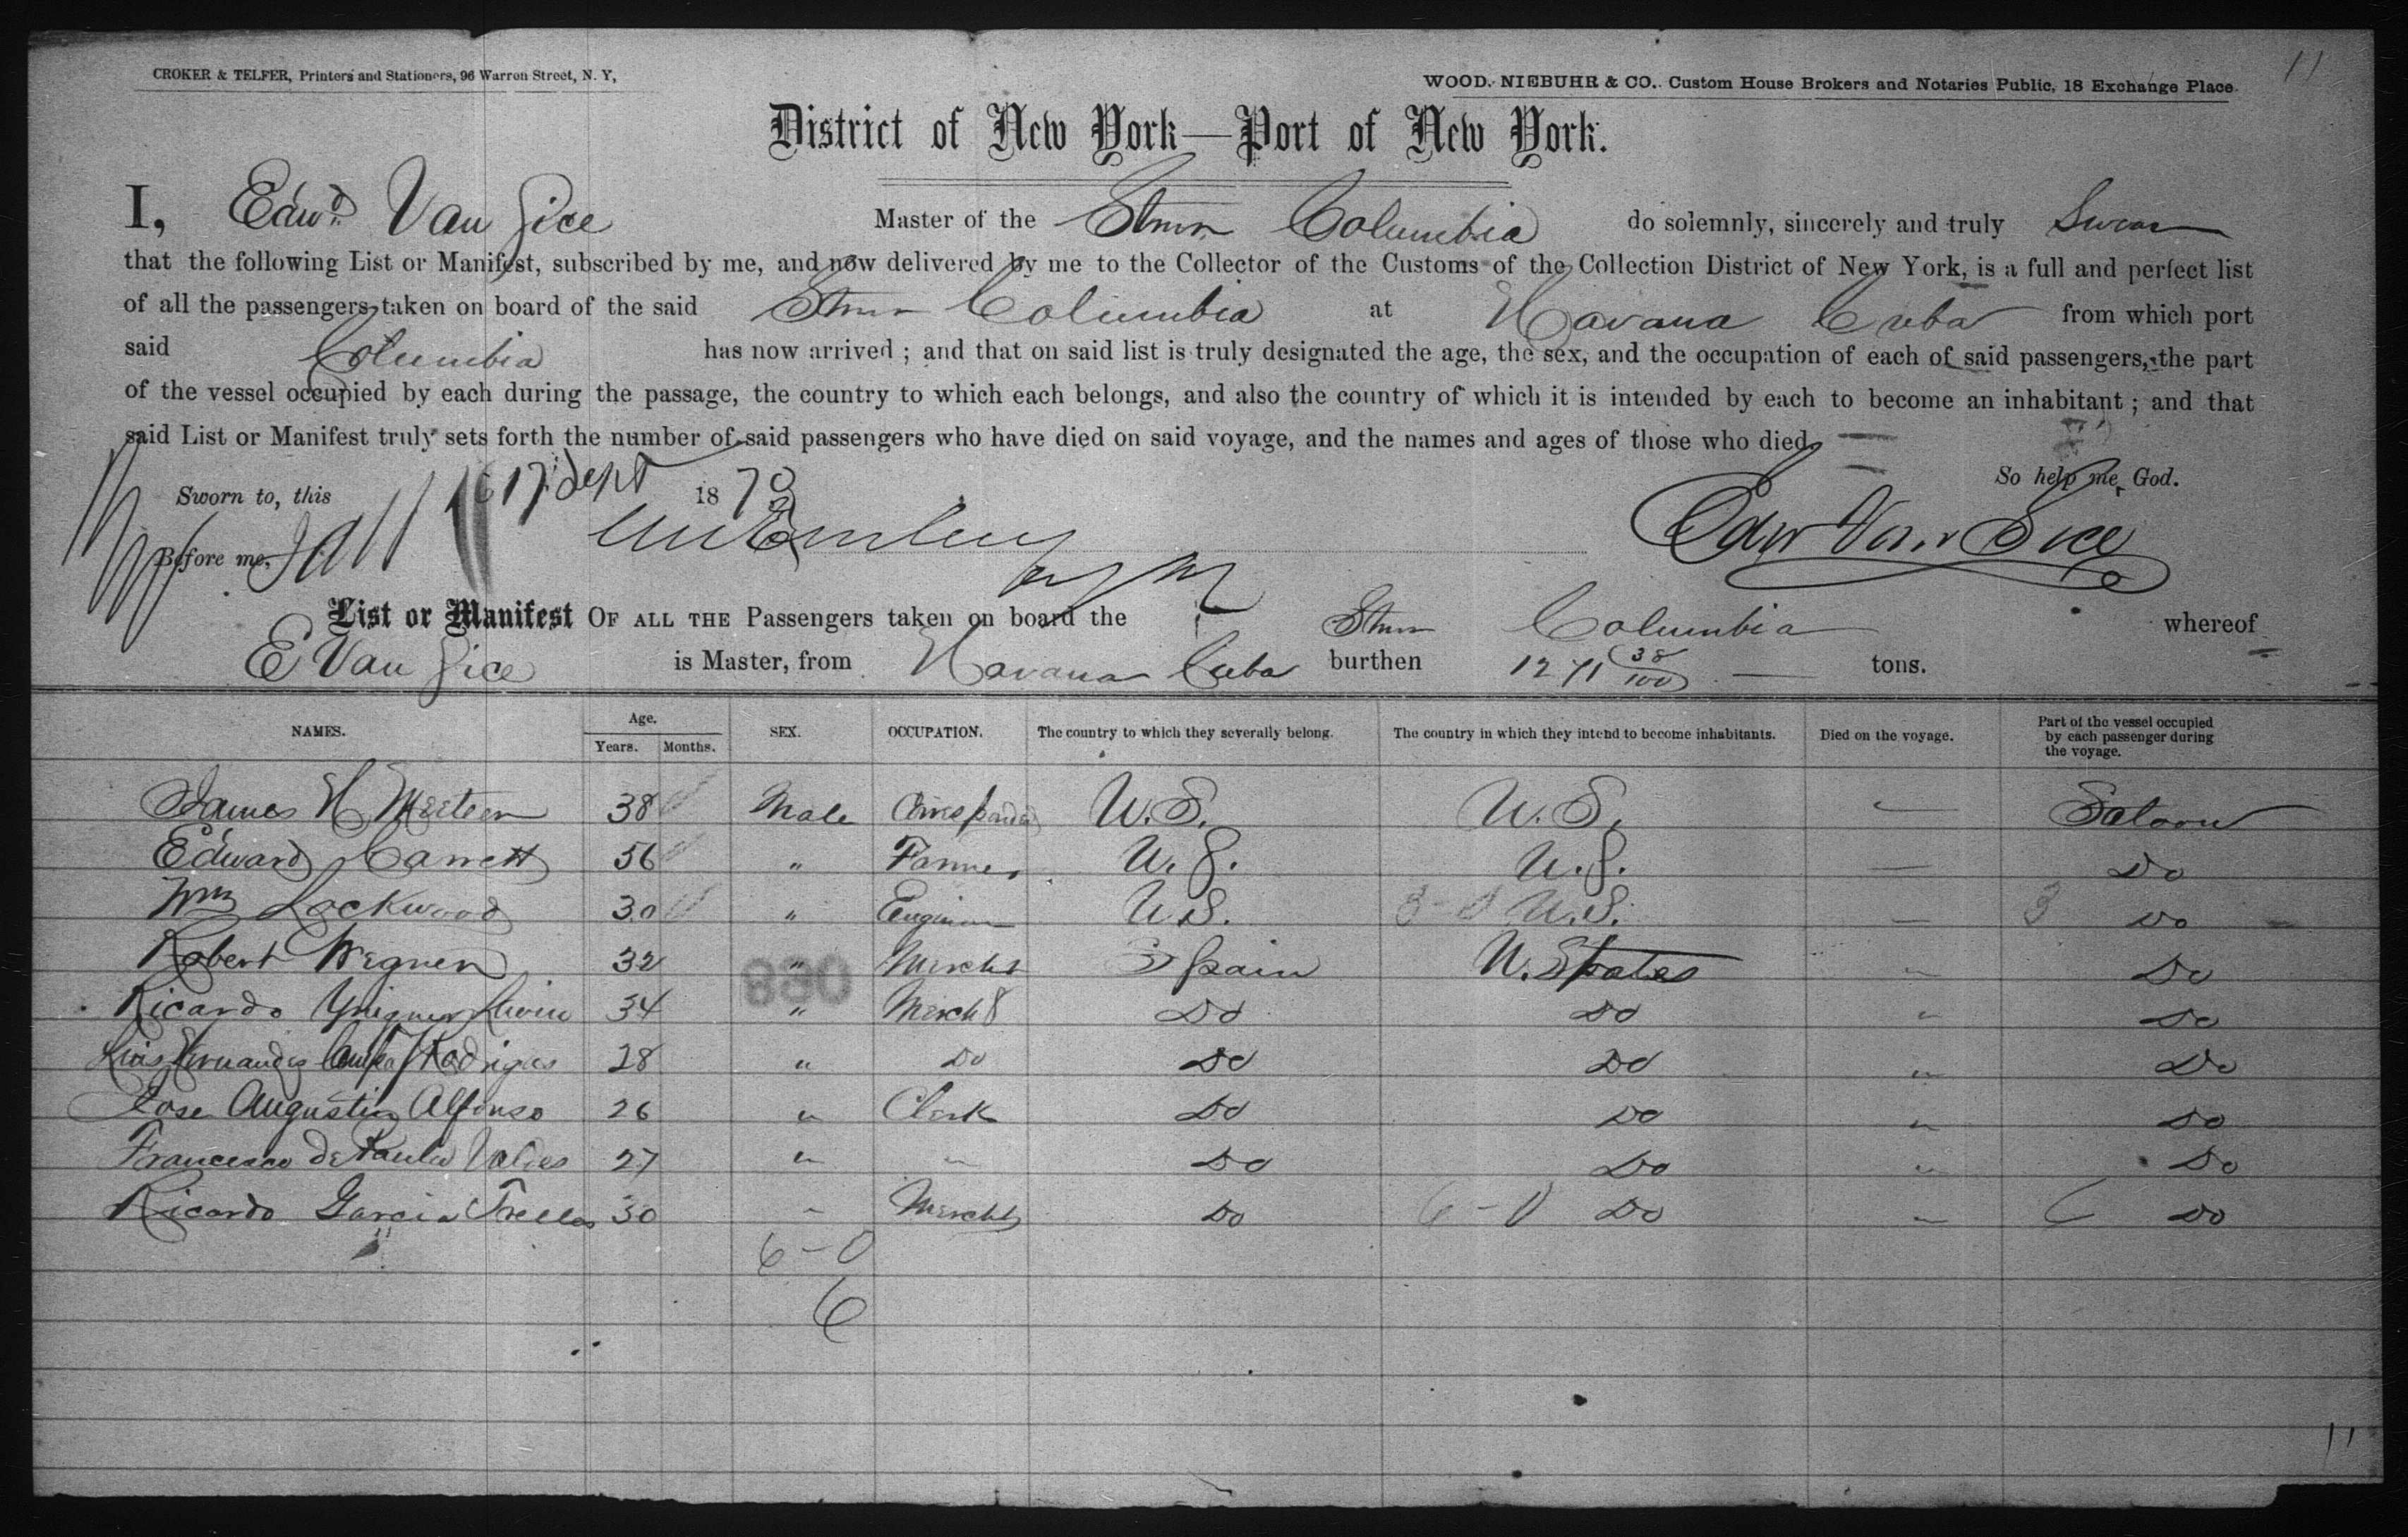 11
CROKER & TELFER, Printers and Stationers, 96 Warren Street, N. Y,
WOOD. NIEBUHR & CO.. Custom House Brokers and Notaries Public, 18 Exchange Place.
District of New York—Port of New York.
I, Edwd Van Sice Master of the Stmr Columbia do solemnly, sincerely and truly Swear
that the following List or Manifest, subscribed by me, and now delivered by me to the Collector of the Customs of the Collection District of New York, is a full and perfect list
of all the passengers taken on board of the said Stmr Columbia at Havana Cuba from which port
said Columbia has now arrived ; and that on said list is truly designated the age, the sex, and the occupation of each of said passengers, the part
of the vessel occupied by each during the passage, the country to which each belongs, and also the country of which it is intended by each to become an inhabitant ; and that
said List or Manifest truly sets forth the number of said passengers who have died on said voyage, and the names and ages of those who died.
So help me God.
Sworn to, this 17 Sept 1870
Before me,
Edwd Van Sice
List or Manifest OF ALL THE Passengers taken on board the Stmr Columbia whereof
E Van Sice is Master, from Havana Cuba burthen 1271 38/100 tons.
NAMES. Age. Years. Months. SEX. OCCUPATION. The country to which they severally belong. The country in which they intend to become inhabitants. Died on the voyage. Part of the vessel occupied by each passenger during the voyage.
James H 38 Male U.S. U.S. — Saloon
Edward Garrett 56 " Farmer U.S. U.S. — Do
Wm Lockwood 30 " Engineer U.S. 3-0 U.S. — 3 Do
Robert Wegner 32 " Mercht Spain U. States " Do
Ricardo 34 " Mercht Do Do " Do
Luis Hernandez 28 " Do Do Do " Do
Jose Augustin Alfonso 26 " Clerk Do Do " Do
Francesco De Paula Valdes 27 " " Do Do " Do
Ricardo Garcia Trelles 30 " Mercht Do 6-0 Do " 6 Do
6-0
6
11